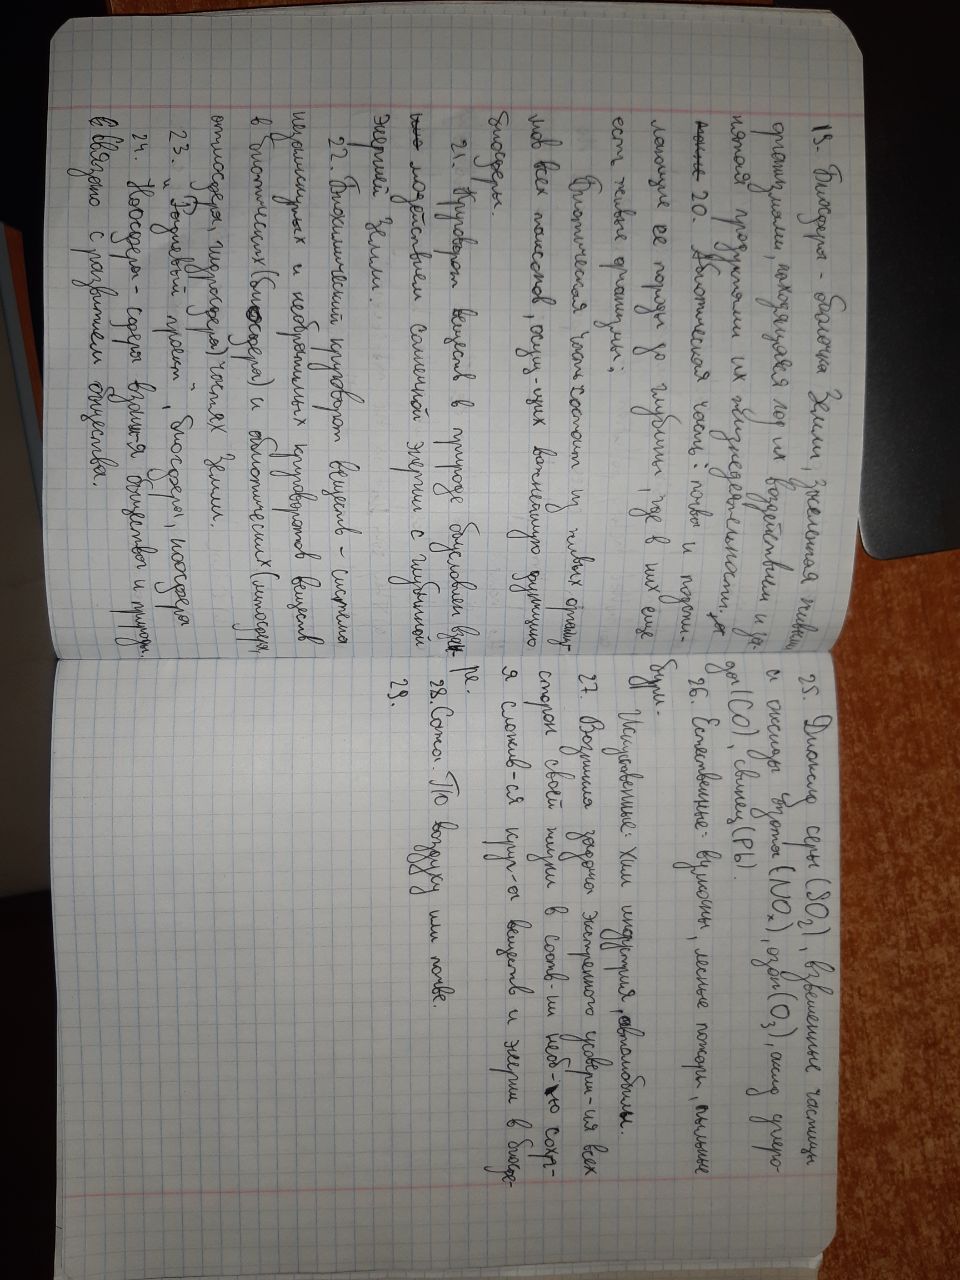 19. Биосферы - оболочка Земли, заселенная живыми
организмами, находящаяся под их воздействием и за-
нятая продуктами их жизнедеятельности.
20. Абиотическая часть: почвы и подсти-
лающие ее породы до глубины, где в них еще
есть живые организмы;
Биотическая часть состоит из живых организ-
мов всех таксонов, осущ-щих важнейшую функцию
биосферы.
21. Круговорот веществ в природе обусловлен взаи-
модействием солнечной энергии с глубинной
энергией Земли.
22. Биохимический круговорот веществ - система
незамкнутых и необратимых круговоротов веществ
в биотических (биосфера) и абиотических (литосфера,
атмосфера, гидросфера) частях Земли.
23. проект", биосферы, ноосфера
24. Ноосфера - сфера взаим-я общества и природы.
Связано с развитием общества.
25. Диоксид серы (SO2), взвешенные частицы
и оксиды азота (NOx), озон (O3), оксид углеро-
да (CO), свинец (Pb).
26. Естественные: вулканы, лесные пожары, пыльные
бури.
Искуственные: хим индустрия, автомобили.
27. Возникла задача экстренного усоверш-ия всех
сторон своей жизни в соотв-ии необ-ью сохр-
я сложив-ся круг-а веществ и энергии в биосфе-
ре.
28. Сажа. По воздуху или почве.
29.